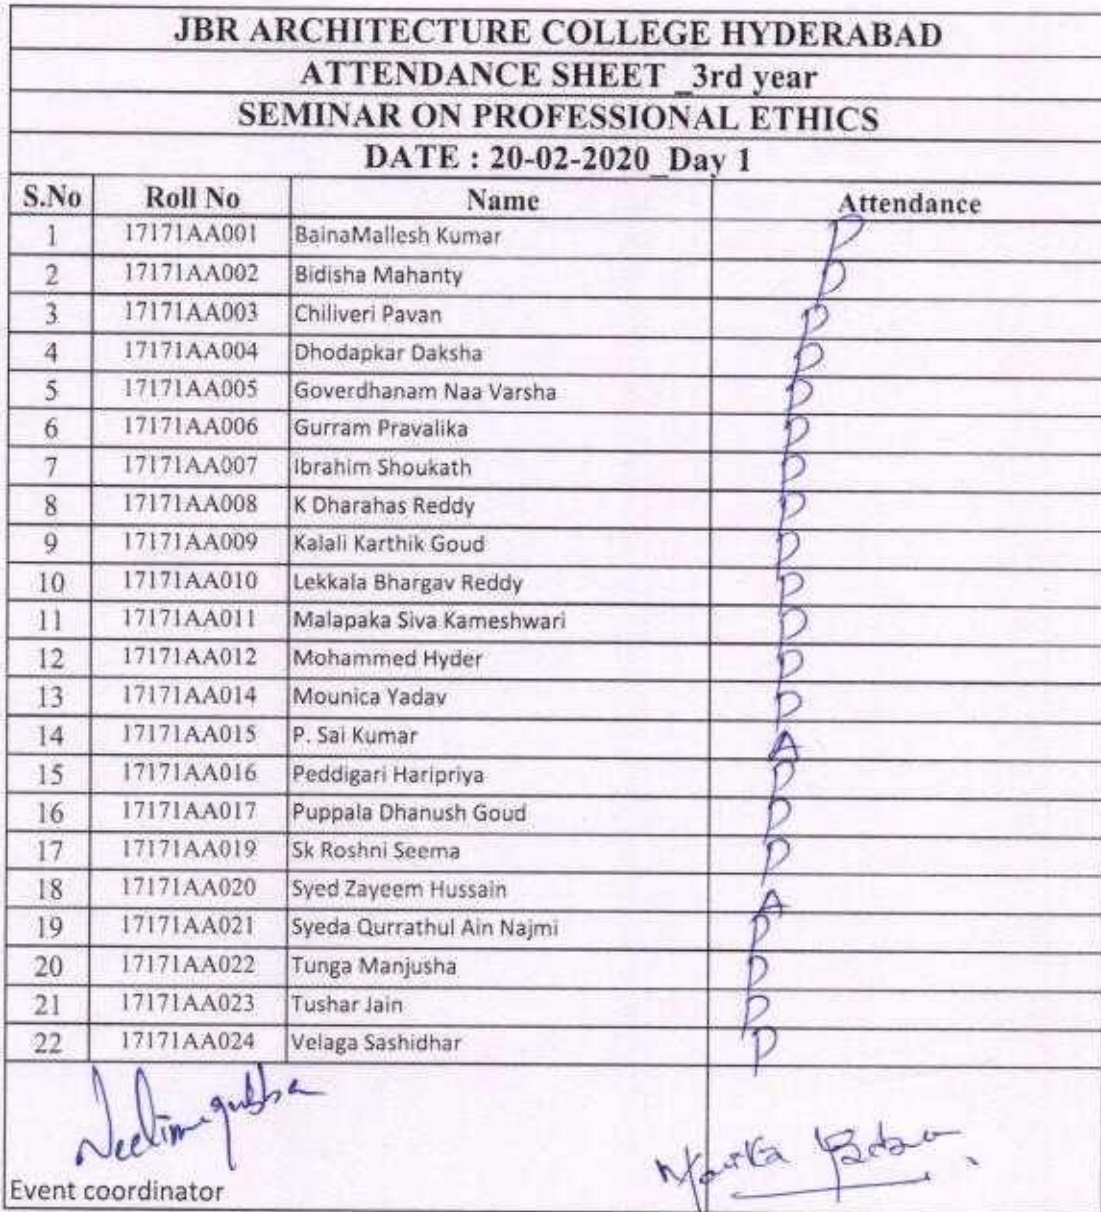 JBR ARCHITECTURE COLLEGE HYDERABAD
ATTENDANCE SHEET _3rd year
SEMINAR ON PROFESSIONAL ETHICS
DATE : 20-02-2020_Day 1
S.No Roll No Name Attendance
1 17171AA001 BainaMallesh Kumar P
2 17171AA002 Bidisha Mahanty P
3 17171AA003 Chiliveri Pavan P
4 17171AA004 Dhodapkar Daksha P
5 17171AA005 Goverdhanam Naa Varsha P
6 17171AA006 Gurram Pravalika P
7 17171AA007 Ibrahim Shoukath P
8 17171AA008 K Dharahas Reddy P
9 17171AA009 Kalali Karthik Goud P
10 17171AA010 Lekkala Bhargav Reddy P
11 17171AA011 Malapaka Siva Kameshwari P
12 17171AA012 Mohammed Hyder P
13 17171AA014 Mounica Yadav P
14 17171AA015 P. Sai Kumar A
15 17171AA016 Peddigari Haripriya P
16 17171AA017 Puppala Dhanush Goud P
17 17171AA019 Sk Roshni Seema P
18 17171AA020 Syed Zayeem Hussain A
19 17171AA021 Syeda Qurrathul Ain Najmi P
20 17171AA022 Tunga Manjusha P
21 17171AA023 Tushar Jain P
22 17171AA024 Velaga Sashidhar P
Event coordinator